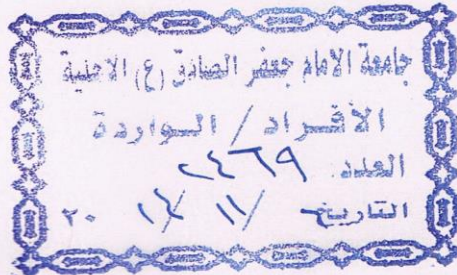 جامعة الامام جعفر الصادق (ع) الاهلية
الأفراد / الواردة
العدد: ٢٤٦٩
التاريخ / ١١ / ٢٠